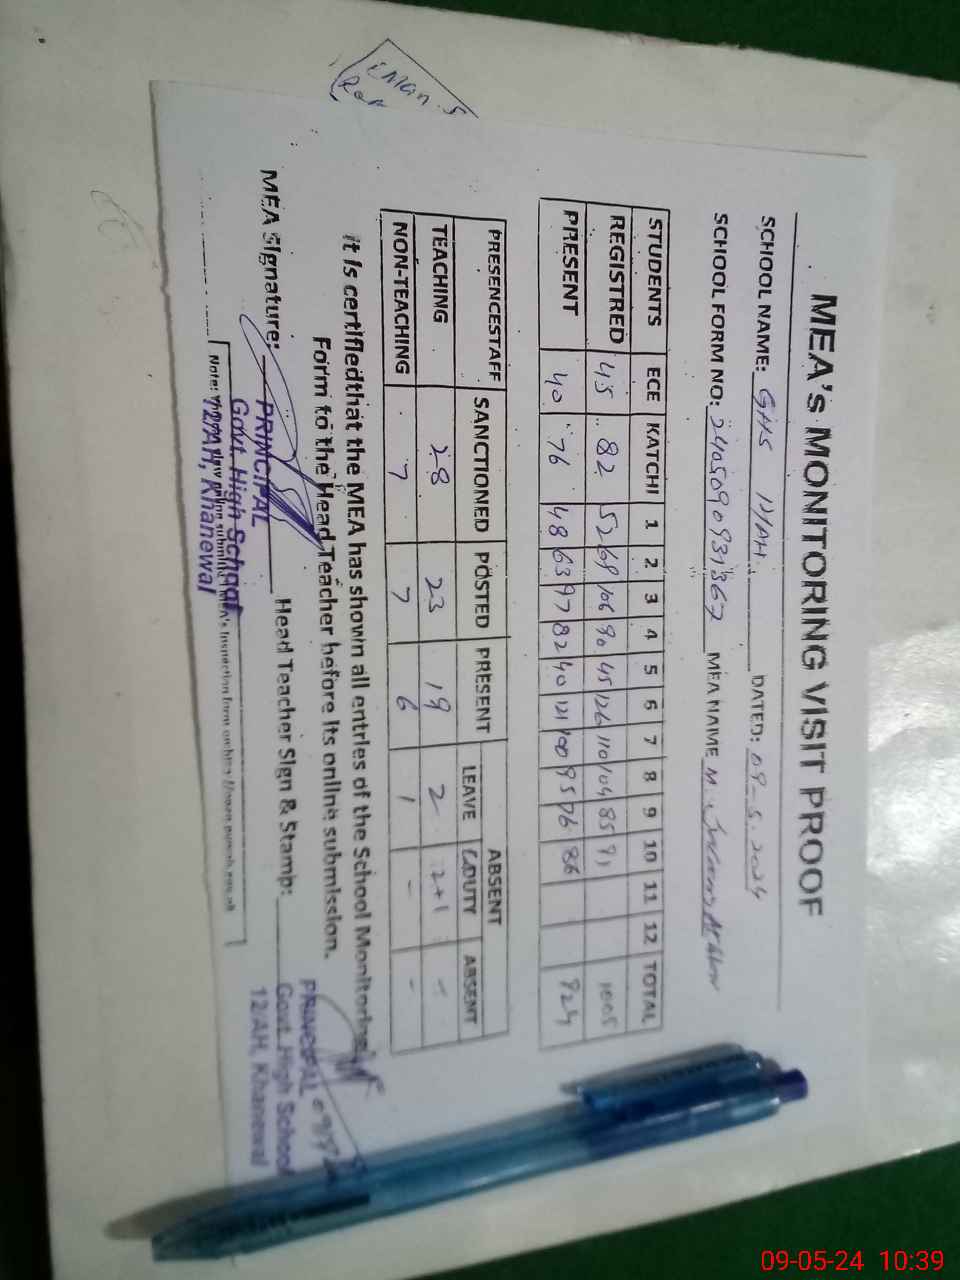 MEA's MONITORING VISIT PROOF
SCHOOL NAME: GHS 12/AH. DATED: 09-5.2024
SCHOOL FORM NO: MEA NAME M.
STUDENTS ECE KATCHI 1 2 3 4 5 6 7 8 9 10 11 12 TOTAL
REGISTRED 45 82 52 69 106 90 45 126 110 104 85 91 1005
PRESENT 40 76 48 63 97 82 40 121 100 95 76 86 924
PRESENCESTAFF SANCTIONED POSTED PRESENT ABSENT
LEAVE DUTY ABSENT
TEACHING 28 23 19 2 2+1 -
NON-TEACHING 7 7 6 1 - -
it is certifiedthat the MEA has shown all entries of the School Monitoring
Form to the Head Teacher before its online submission.
MEA Signature: Head Teacher Sign & Stamp:
PRINCIPAL
Govt. High School
12/AH, Khanewal
PRINCIPAL
Govt. High School
12/AH, Khanewal
09-05-24 10:39